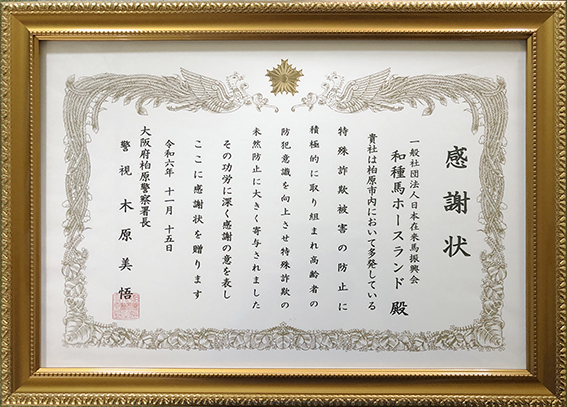 感謝状
一般社団法人日本在来馬振興会
和種馬ホースランド 殿
貴社は柏原市内において多発している
特殊詐欺被害の防止に
積極的に取り組まれ高齢者の
防犯意識を向上させ特殊詐欺の
未然防止に大きく寄与されました
その功労に深く感謝の意を表し
ここに感謝状を贈ります
令和六年 十一月 十五日
大阪府柏原警察署長
警視 木原美悟